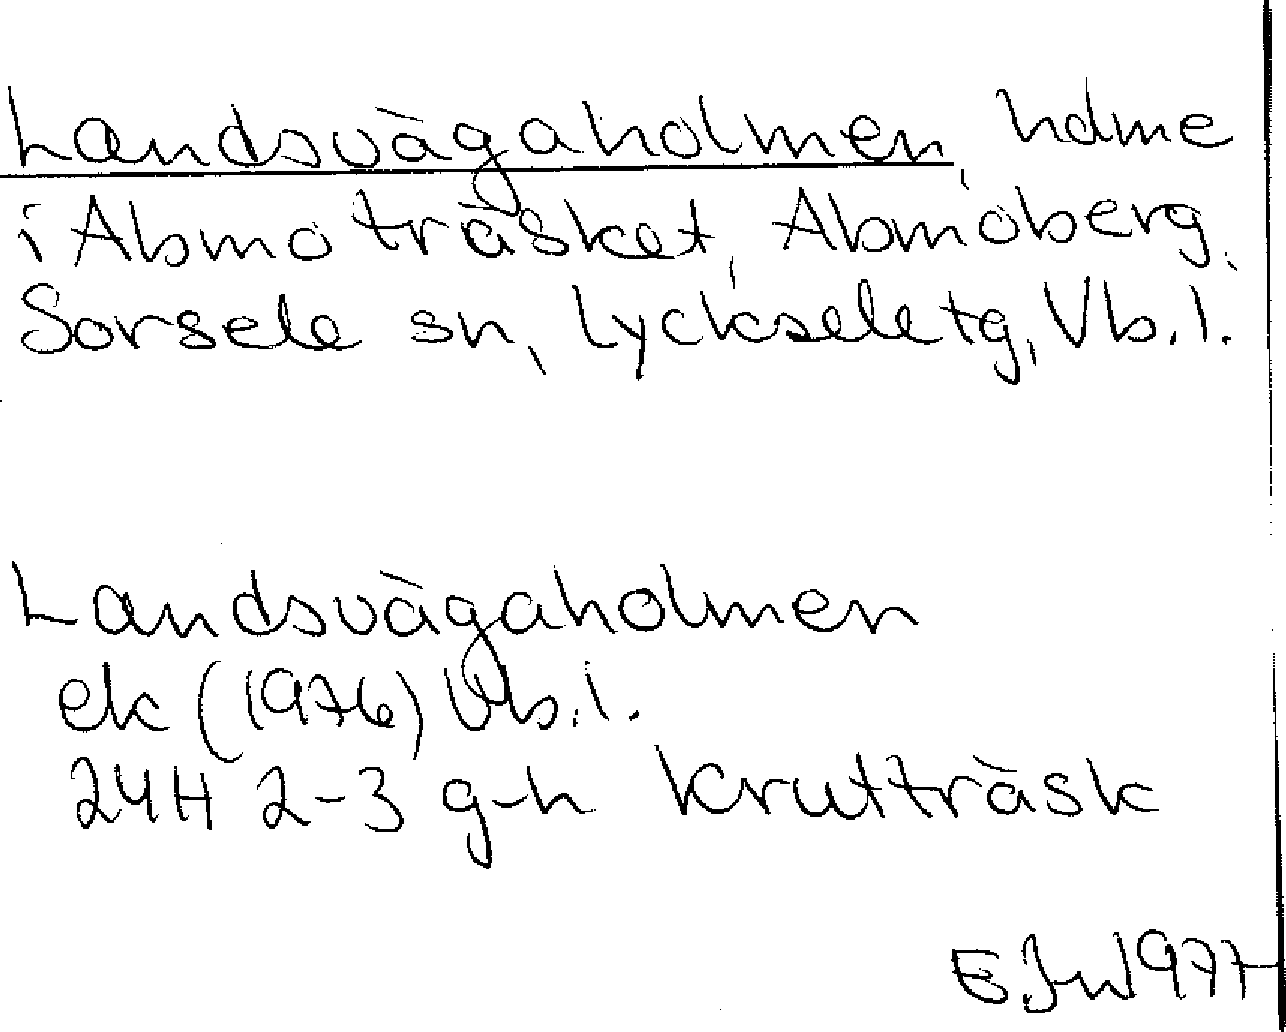 Landsvägaholmen, holme
i Abmoträsket, Abmoberg,
Sorsele sn, Lycksele tg, Vb.l.
Landsvägaholmen
ek (1976) Vb.l.
24H 2-3 g-h Krutträsk
1977